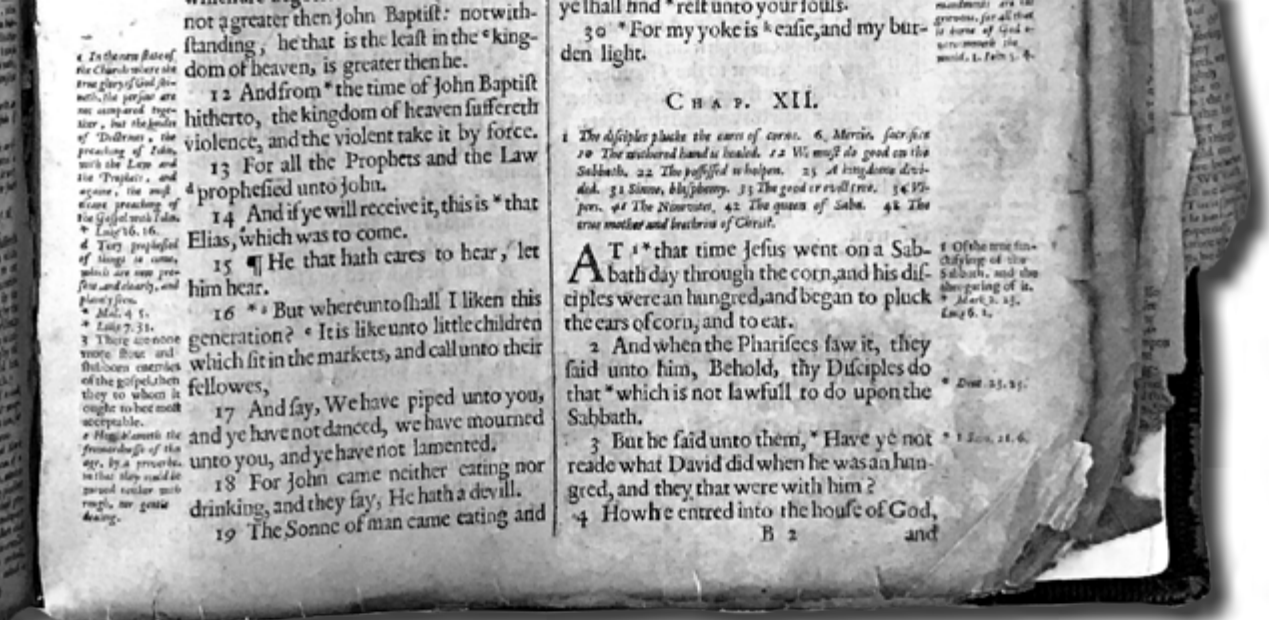 not a greater then John Baptiſt: notwith-
ſtanding, he that is the leaſt in the ᶜking-
dom of heaven, is greater then he.
12 And from * the time of John Baptiſt
hitherto, the kingdom of heaven ſuffereth
violence, and the violent take it by force.
13 For all the Prophets and the Law
ᵈ propheſied unto John.
14 And if ye will receive it, this is * that
Elias, which was to come.
15 ¶ He that hath eares to hear, let
him hear.
16 * ³ But whereunto ſhall I liken this
generation? ᵉ It is like unto little children
which ſit in the markets, and call unto their
fellowes,
17 And ſay, We have piped unto you,
and ye have not danced, we have mourned
unto you, and ye have not lamented.
18 For John came neither eating nor
drinking, and they ſay, He hath a devill.
19 The Sonne of man came eating and
* Luke 16. 16.
* Mal. 4 5.
* Luke 7. 31.
3 There are none
more ſtout and
ſtubborn enemies
of the goſpel, then
they to whom it
ought to bee moſt
acceptable.
ye ſhall find * reſt unto your ſouls.
30 * For my yoke is ᵏ eaſie, and my bur-
den light.
CHAP. XII.
1 The diſciples plucke the eares of corne. 6 Mercie, ſacrifice
10 The withered hand is healed. 12 We muſt do good on the
Sabbath. 22 The poſſeſſed is holpen. 25 A kingdome divi-
ded. 31 Sinne, blaſphemy. 33 The good or evill tree. 34 Vi-
pers. 41 The Ninevites. 42 The queen of Saba. 48 The
true mother and brethren of Chriſt.
AT ¹ * that time Jeſus went on a Sab-
bath day through the corn, and his diſ-
ciples were an hungred, and began to pluck
the ears of corn, and to eat.
2 And when the Phariſees ſaw it, they
ſaid unto him, Behold, thy Diſciples do
that * which is not lawfull to do upon the
Sabbath.
3 But he ſaid unto them, * Have ye not
reade what David did when he was an hun-
gred, and they that were with him?
4 How he entred into the houſe of God,
B 2 and
1 Of the true ſan-
ctifying of the
Sabbath, and the
abrogating of it.
* Mark 2. 23.
Luke 6. 1.
* Deut. 23. 25.
* 1 Sam. 21. 6.